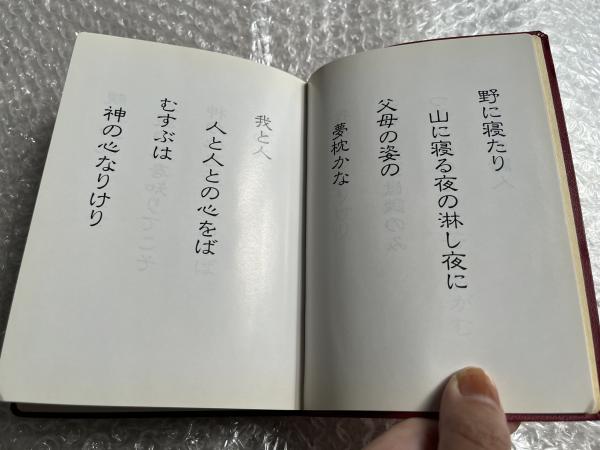 野に寝たり
山に寝る夜の淋し夜に
父母の姿の
夢枕かな
我と人
人と人との心をば
むすぶは
神の心なりけり